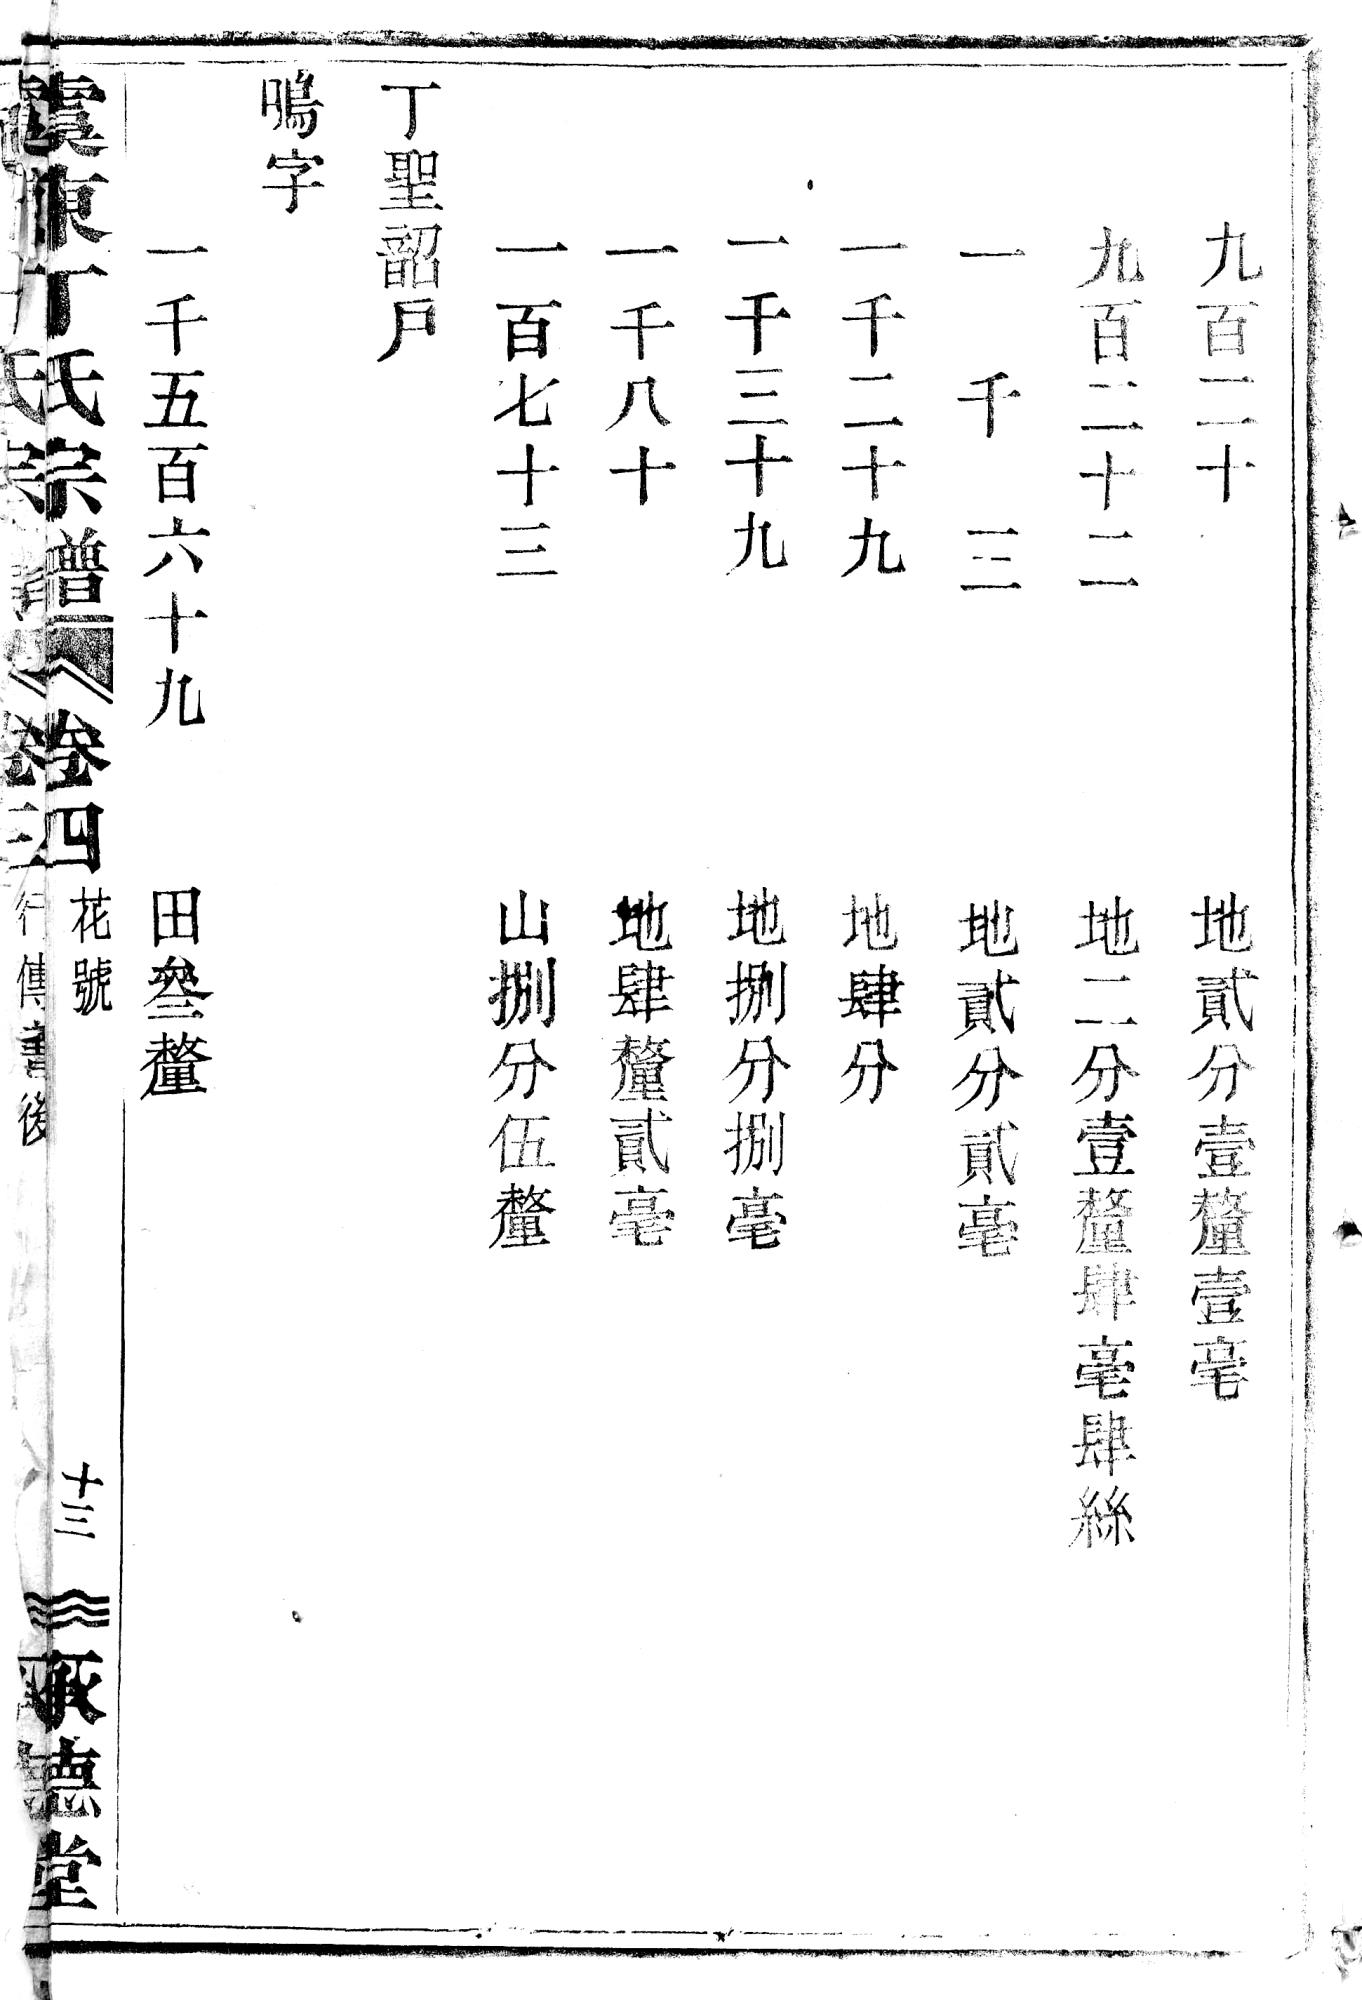 九百二十　地貳分壹釐壹毫
九百二十二　地二分壹釐肆毫肆絲
一千三　地貳分貳毫
一千二十九　地肆分
一千三十九　地捌分捌毫
一千八十　地肆釐貳毫
一百七十三　山捌分伍釐
丁聖韶戶
鳴字
一千五百六十九　田叄釐
東丁氏宗譜　卷四　花號　十三　承德堂
行傳書後